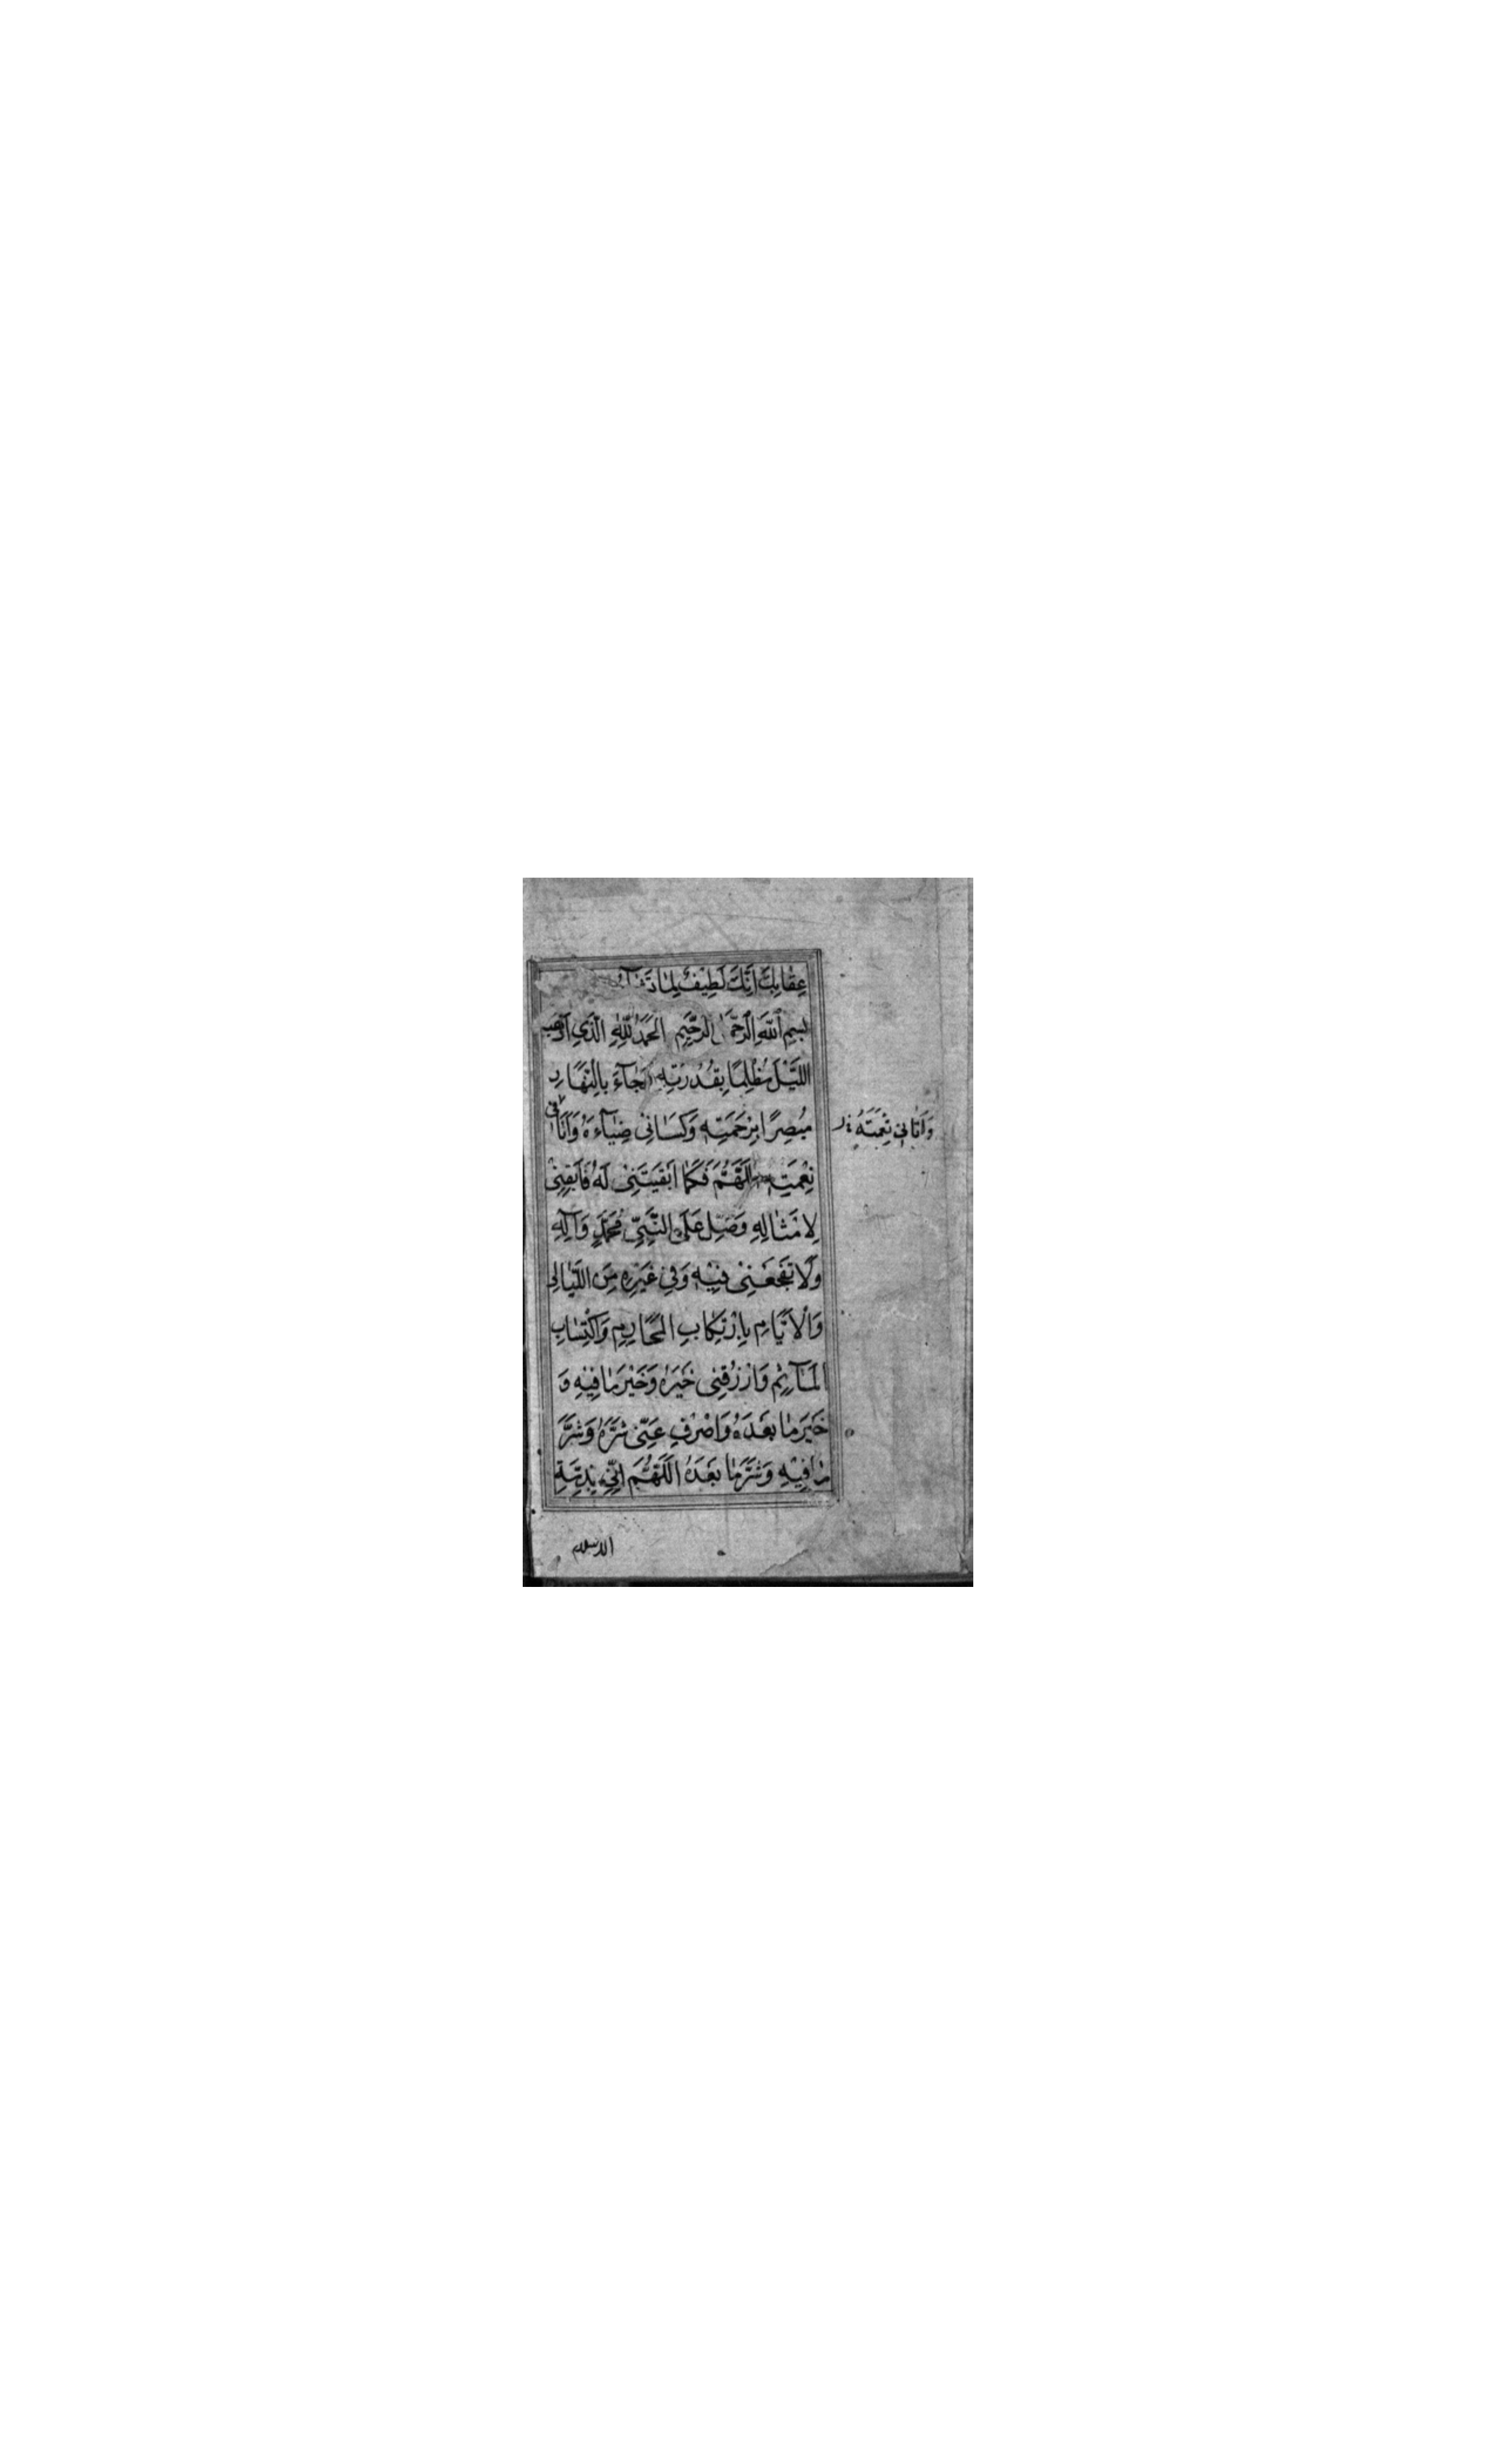 عِقَابِكَ اِنَّكَ لَطِيْفٌ لِمَا تَشَآءُ
بِسْمِ اللّٰهِ الرَّحْمٰنِ الرَّحِيْمِ الحَمْدُ لِلّٰهِ الَّذِي اَذْهَبَ
اللَّيْلَ مُظْلِمًا بِقُدْرَتِهِ وَجَآءَ بِالنَّهَارِ
مُبْصِرًا بِرَحْمَتِهِ وَكَسَانِى ضِيَآءَهُ وَاَنَا فِى
نِعْمَتِهِ اللّٰهُمَّ فَكَمَا اَبْقَيْتَنِىْ لَهُ فَاَبْقِنِىْ
لِاَمْثَالِهِ وَصَلِّ عَلَى النَّبِيِّ مُحَمَّدٍ وَآلِهِ
وَلَا تَفْجَعْنِىْ فِيْهِ وَفِى غَيْرِهِ مِنَ اللَّيَالِى
وَالْاَيَّامِ بِارْتِكَابِ المَحَارِمِ وَاكْتِسَابِ
المَآثِمِ وَارْزُقْنِى خَيْرَهُ وَخَيْرَ مَا فِيْهِ وَ
خَيْرَ مَا بَعْدَهُ وَاصْرِفْ عَنِّى شَرَّهُ وَشَرَّ
مَا فِيْهِ وَشَرَّ مَا بَعْدَهُ اللّٰهُمَّ اِنِّى بِذِمَّةِ
الاسلام
وَاٰتَانِى نِعْمَتَهُ